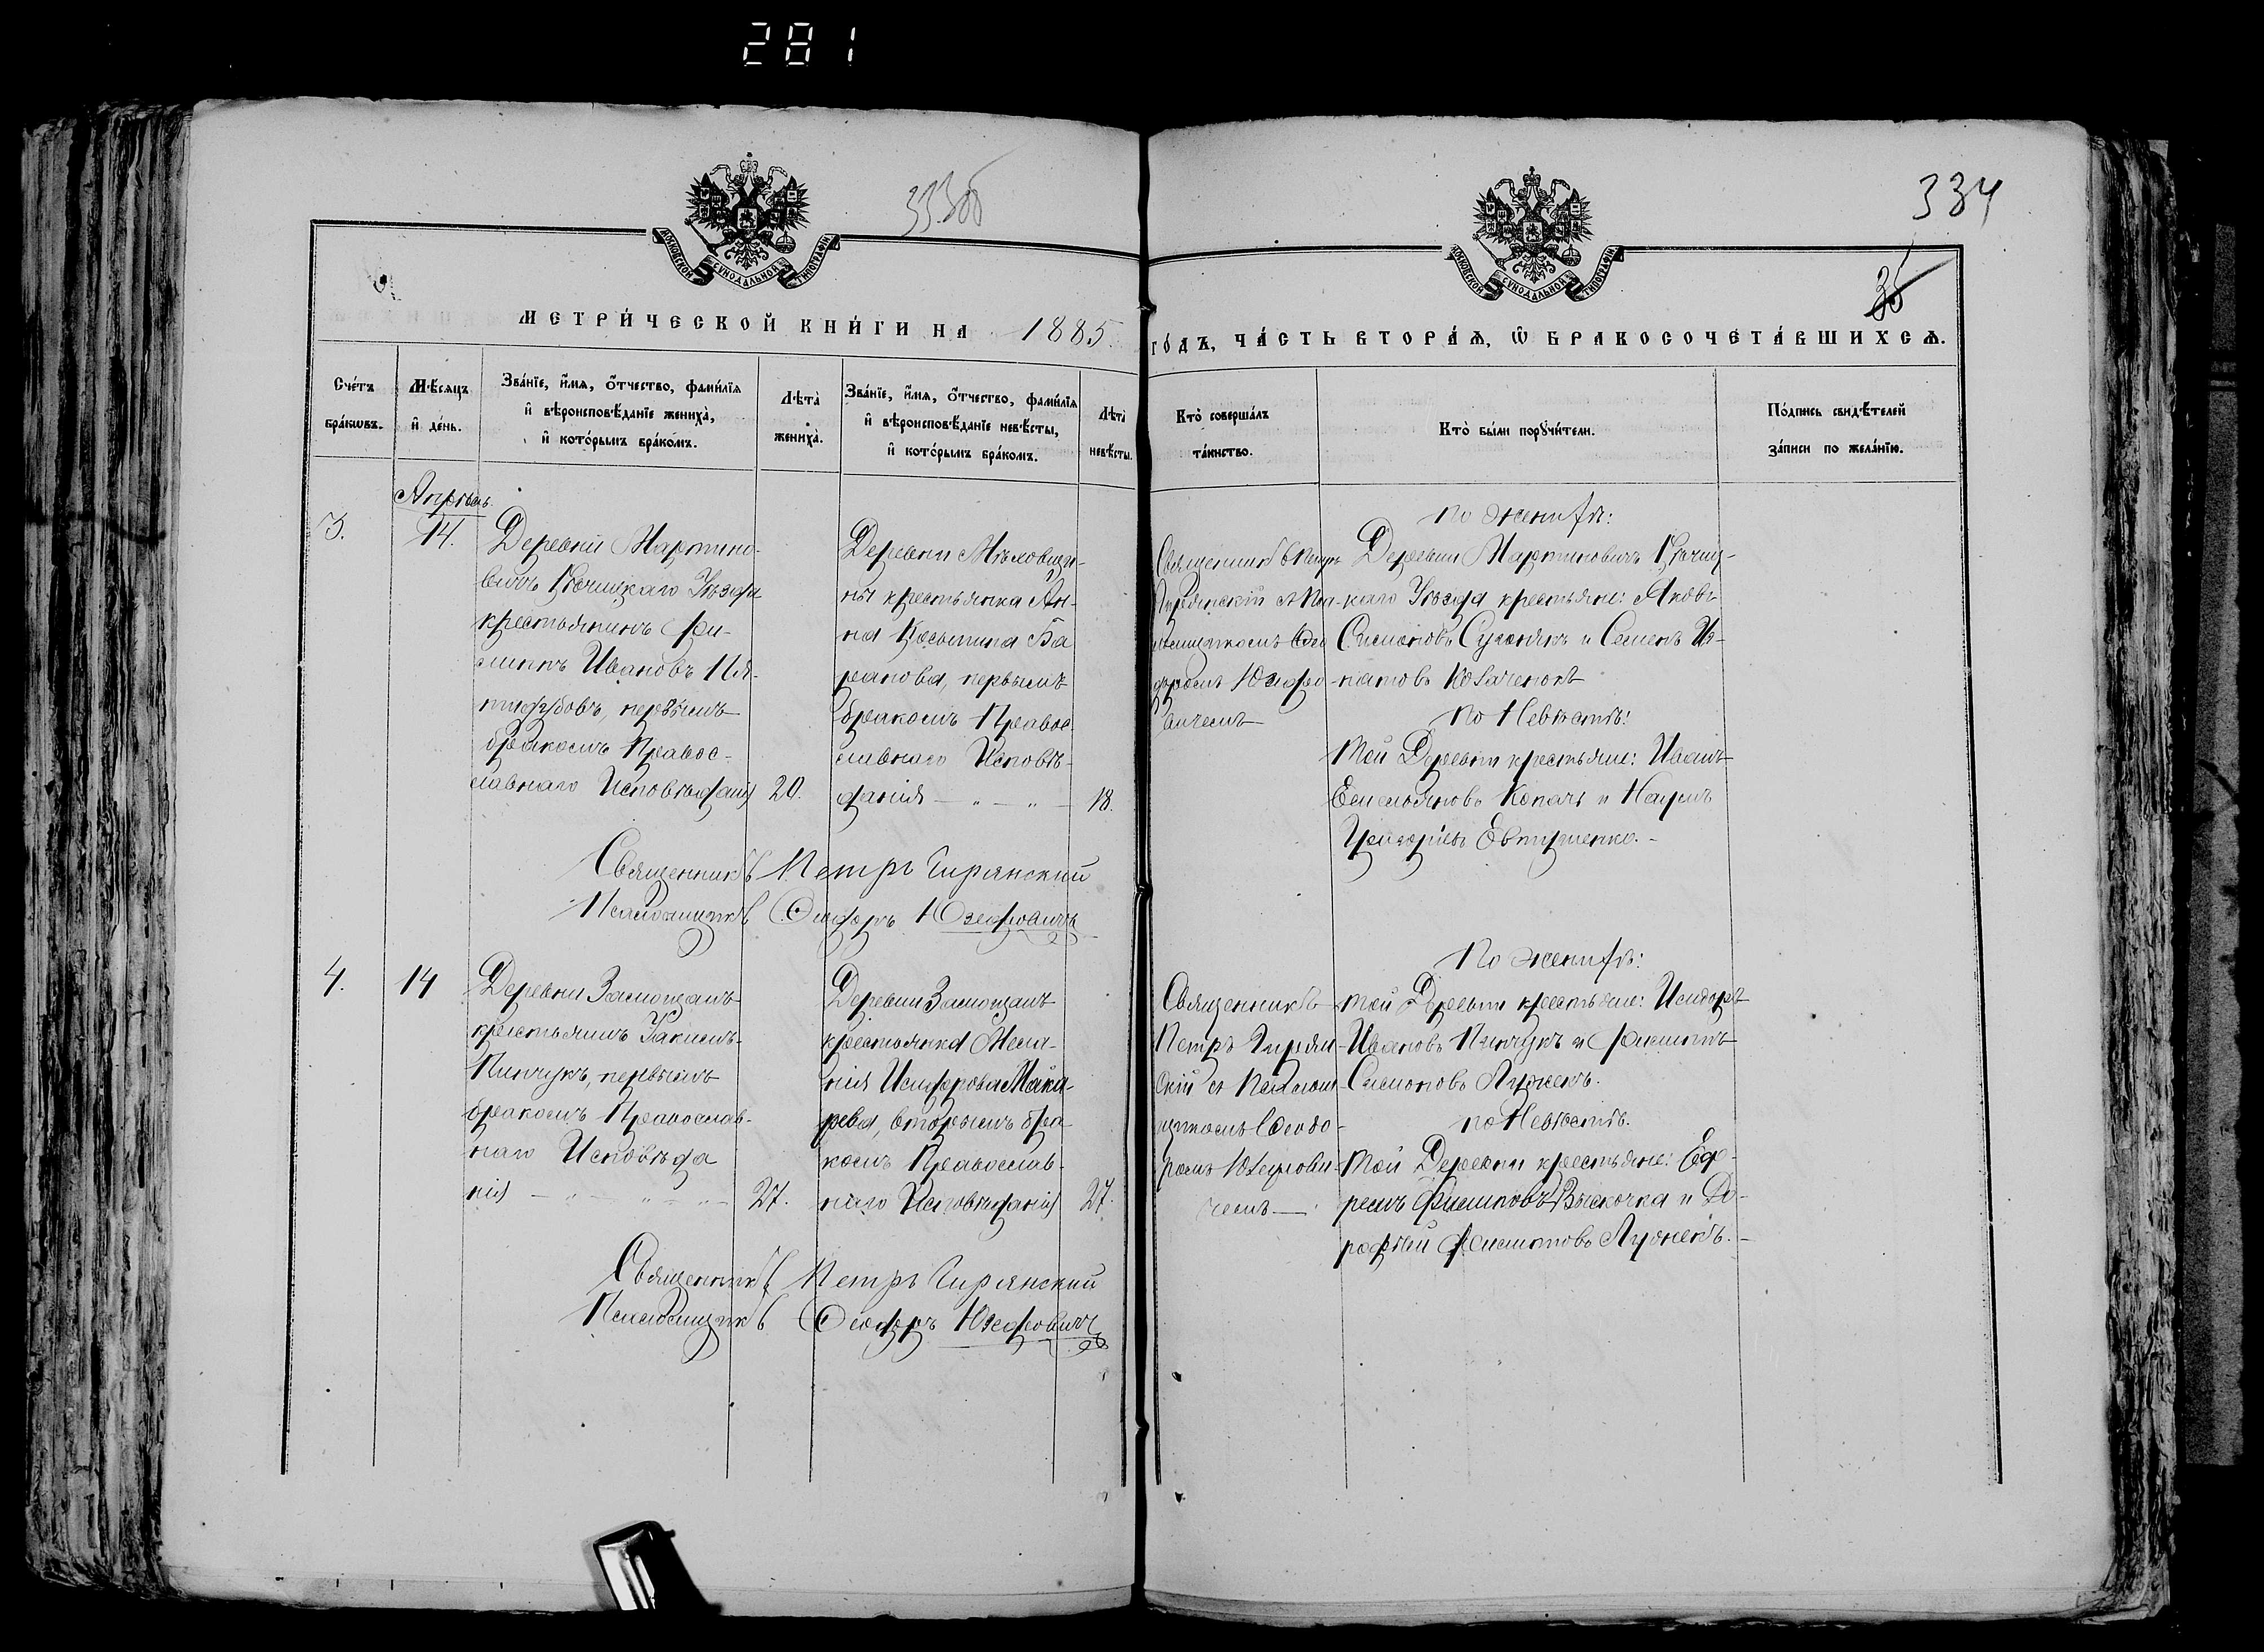 281
333об
334
35
МОСКОВСКОЙ СѴНОДАЛЬНОЙ ТИПОГРАФІИ
МОСКОВСКОЙ СѴНОДАЛЬНОЙ ТИПОГРАФІИ
МЕТРИ́ЧЕСКОЙ КНИ́ГИ НА 1885
ГО́ДЪ, ЧА́СТЬ ВТОРА́Ѧ, Ѿ БРАКОСОЧЕТА́ВШИХСѦ.
Сче́тъ
бра́кѡвъ.
Мѣ́сяцъ
и҆ де́нь.
Зва́нїе, и҆́мѧ, ѻ҆́тчество, фами́лїѧ
и҆ вѣроисповѣ́данїе жениха̀,
и҆ кото́рымъ бра́комъ.
Лѣта̀
жениха̀.
Зва́нїе, и҆́мѧ, ѻ҆́тчество, фами́лїѧ
и҆ вѣроисповѣ́данїе невѣ́сты,
и҆ кото́рымъ бра́комъ.
Лѣта̀
невѣ́сты.
Кто̀ соверша́лъ
та́инство.
Кто̀ бы́ли порꙋчи́тели.
По́дпись свидѣ́телей
за́писи по жела́нїю.
Апрѣль.
3.
14.
Деревни Мартино-
вичъ Рѣчицкаго Уѣзда
крестьянинъ Фи-
липпъ Ивановъ Пя-
первымъ
бракомъ Правос-
славнаго Исповѣданія
20.
Деревни
ны крестьянка Ан-
на Косьмина Ба
ранова, первымъ
бракомъ Правос
славнаго Исповѣ-
данія — „ — „ —
18.
Священникъ Петръ
Гирянский
Юзефо
вичемъ
По женихѣ:
Деревни Мартиновичъ Рѣчиц-
каго Уѣзда крестьяне: Яковъ
Симоновъ и Семенъ Иг-
натовъ
По Невѣстѣ:
Той Деревни крестьяне: Иванъ
Емельяновъ Копачъ и Наумъ
Григорьевъ Евтушенко. -
Священникъ Петръ Гирянский
Псаломщикъ Ѳеодоръ Юзефовичъ
4.
14
Деревни Замощанъ
крестьянинъ
Пинчукъ, первымъ
бракомъ Православ-
наго Исповѣда
нія — „ — „ — „ —
27.
Деревни Замощанъ
крестьянка Мела-
нія Исидорова Мака-
рева, вторымъ бра
комъ Православ-
наго Исповѣданія
27.
Священникъ
Петръ Гирян-
скій съ Псалом-
щикомъ Ѳеодо-
ромъ Юзефови-
чемъ —
По женихѣ:
той Деревни крестьяне: Исидоръ
Ивановъ Пинчукъ и Филиппъ
Симоновъ
по Невѣстѣ.
Той Деревни крестьяне: Еф-
ремъ Филиповъ Выскочка и До-
рофѣй Филиповъ
Священникъ Петръ Гирянский
Псаломщикъ Ѳеодоръ Юзефовичъ